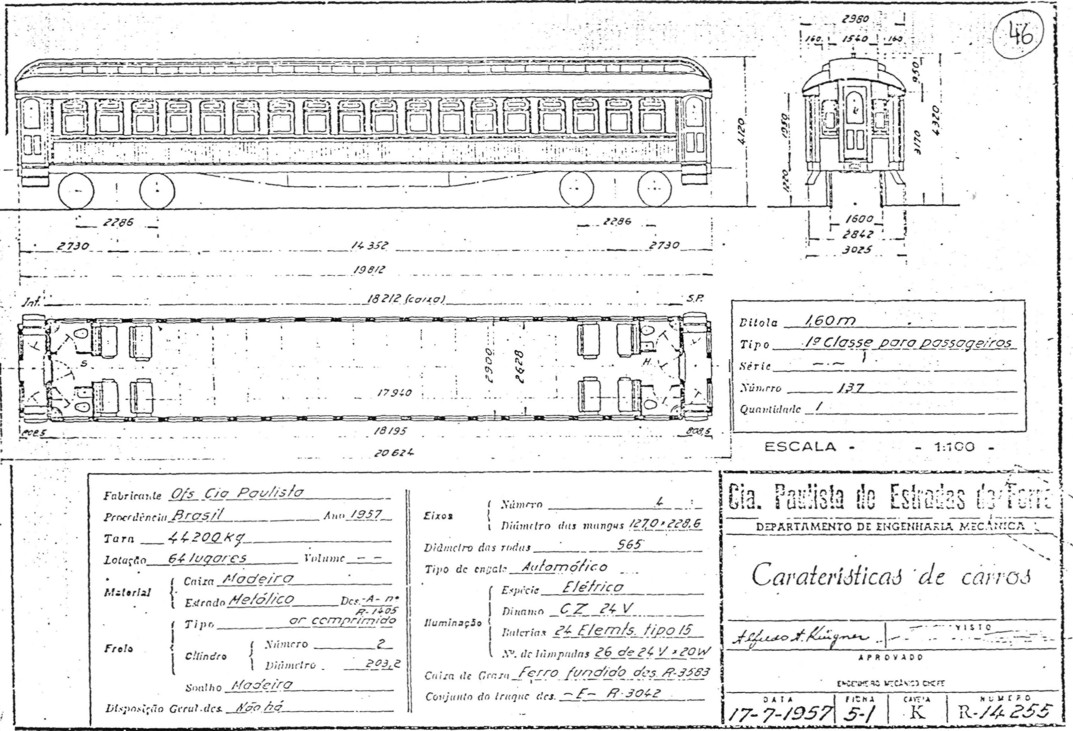 46
2980
160 1540 160
950
4120
1050
3170
4320
1220
2286 2286
1600
2730 14 352 2730
2842
3025
19812
Int. 18212 (caixa) S.P.
S H
2900 2628
17940
18195
20624
Bitola 1,60 m
Tipo 1ª Classe para passageiros
Série - -
Número 137
Quantidade 1
ESCALA - - 1:100 -
Fabricante Ofs Cia Paulista
Procedência Brasil Ano 1957
Tara 44200 Kg
Lotação 64 lugares Volume - -
Material
Caixa Madeira
Estrado Metálico Des. -A- nº R-1405
Freio
Tipo ar comprimido
Cilindro
Número 2
Diâmetro 203,2
Soalho Madeira
Disposição Geral des. Não há
Eixos
Número 4
Diâmetro das mangas 127,0 x 228,6
Diâmetro das rodas 965
Tipo de engate Automático
Iluminação
Espécie Elétrica
Dinamo C Z 24 V
Baterias 24 Elemts. tipo 15
Nº. de lâmpadas 26 de 24 V x 20W
Caixa de Graxa Ferro fundido des R-3583
Conjunto do truque des. -E- R-3042
Cia. Paulista de Estradas de Ferro
DEPARTAMENTO DE ENGENHARIA MECÂNICA
Caraterísticas de carros
VISTO
APROVADO
ENGENHEIRO MECÂNICO CHEFE
DATA FICHA GAVETA NÚMERO
17-7-1957 5-1 K R-14 255